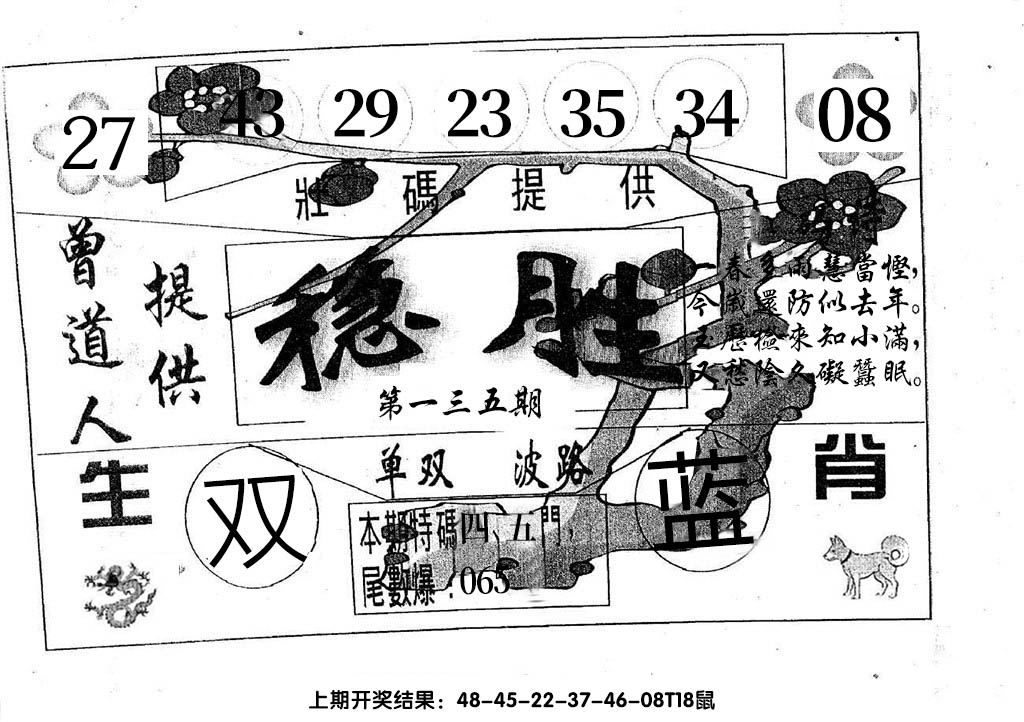 27 43 29 23 35 34 08
壯碼提供
曾道人
提供
稳胜
第一三五期
春多雨慧當慳,
今歲還防似去年。
玉歷檢來知小滿,
又愁陰久礙蠶眠。
生肖
双
单双 波路
蓝
本期特碼四、五門,
尾數爆:065
上期开奖结果:48-45-22-37-46-08T18鼠